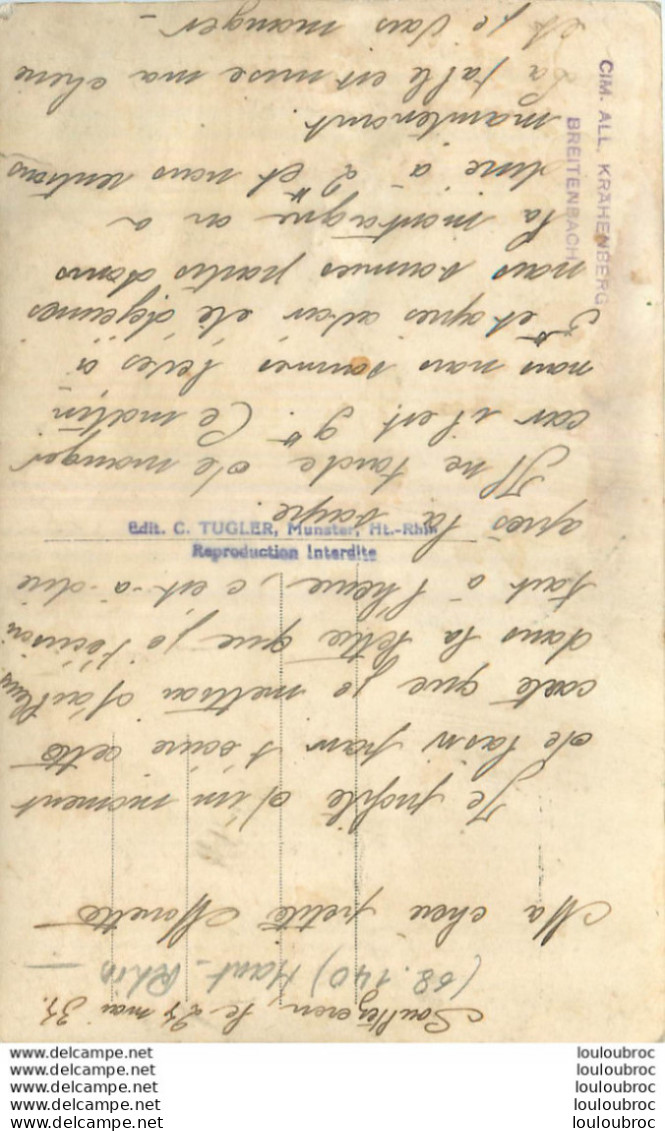 le 24 mai 37.
(68.140) Haut-Rhin
Ma chère petite
Je profite d'un moment
de pour t'écrire cette
carte que je mettrai d'ailleurs
dans la lettre que je t'écrirai
tout à l'heure, c'est-à-dire
après la soupe.
Il me tarde de manger
car il est 9h. Ce matin
nous nous sommes levés à
5h et après avoir été déjeuner
nous sommes partis dans
la montagne on a
dîné à 2h et nous rentrons
maintenant.
La table est mise ma chère
et je vais manger -
CIM. ALL. KRÄHENBERG
BREITENBACH
Edit. C. TUGLER, Munster, Ht.-Rhin
Reproduction Interdite
www.delcampe.net louloubroc
www.delcampe.net louloubroc
www.delcampe.net louloubroc
www.delcampe.net louloubroc
www.delcampe.net louloubroc